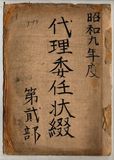 昭和九年度
代理委任状綴
第貳部